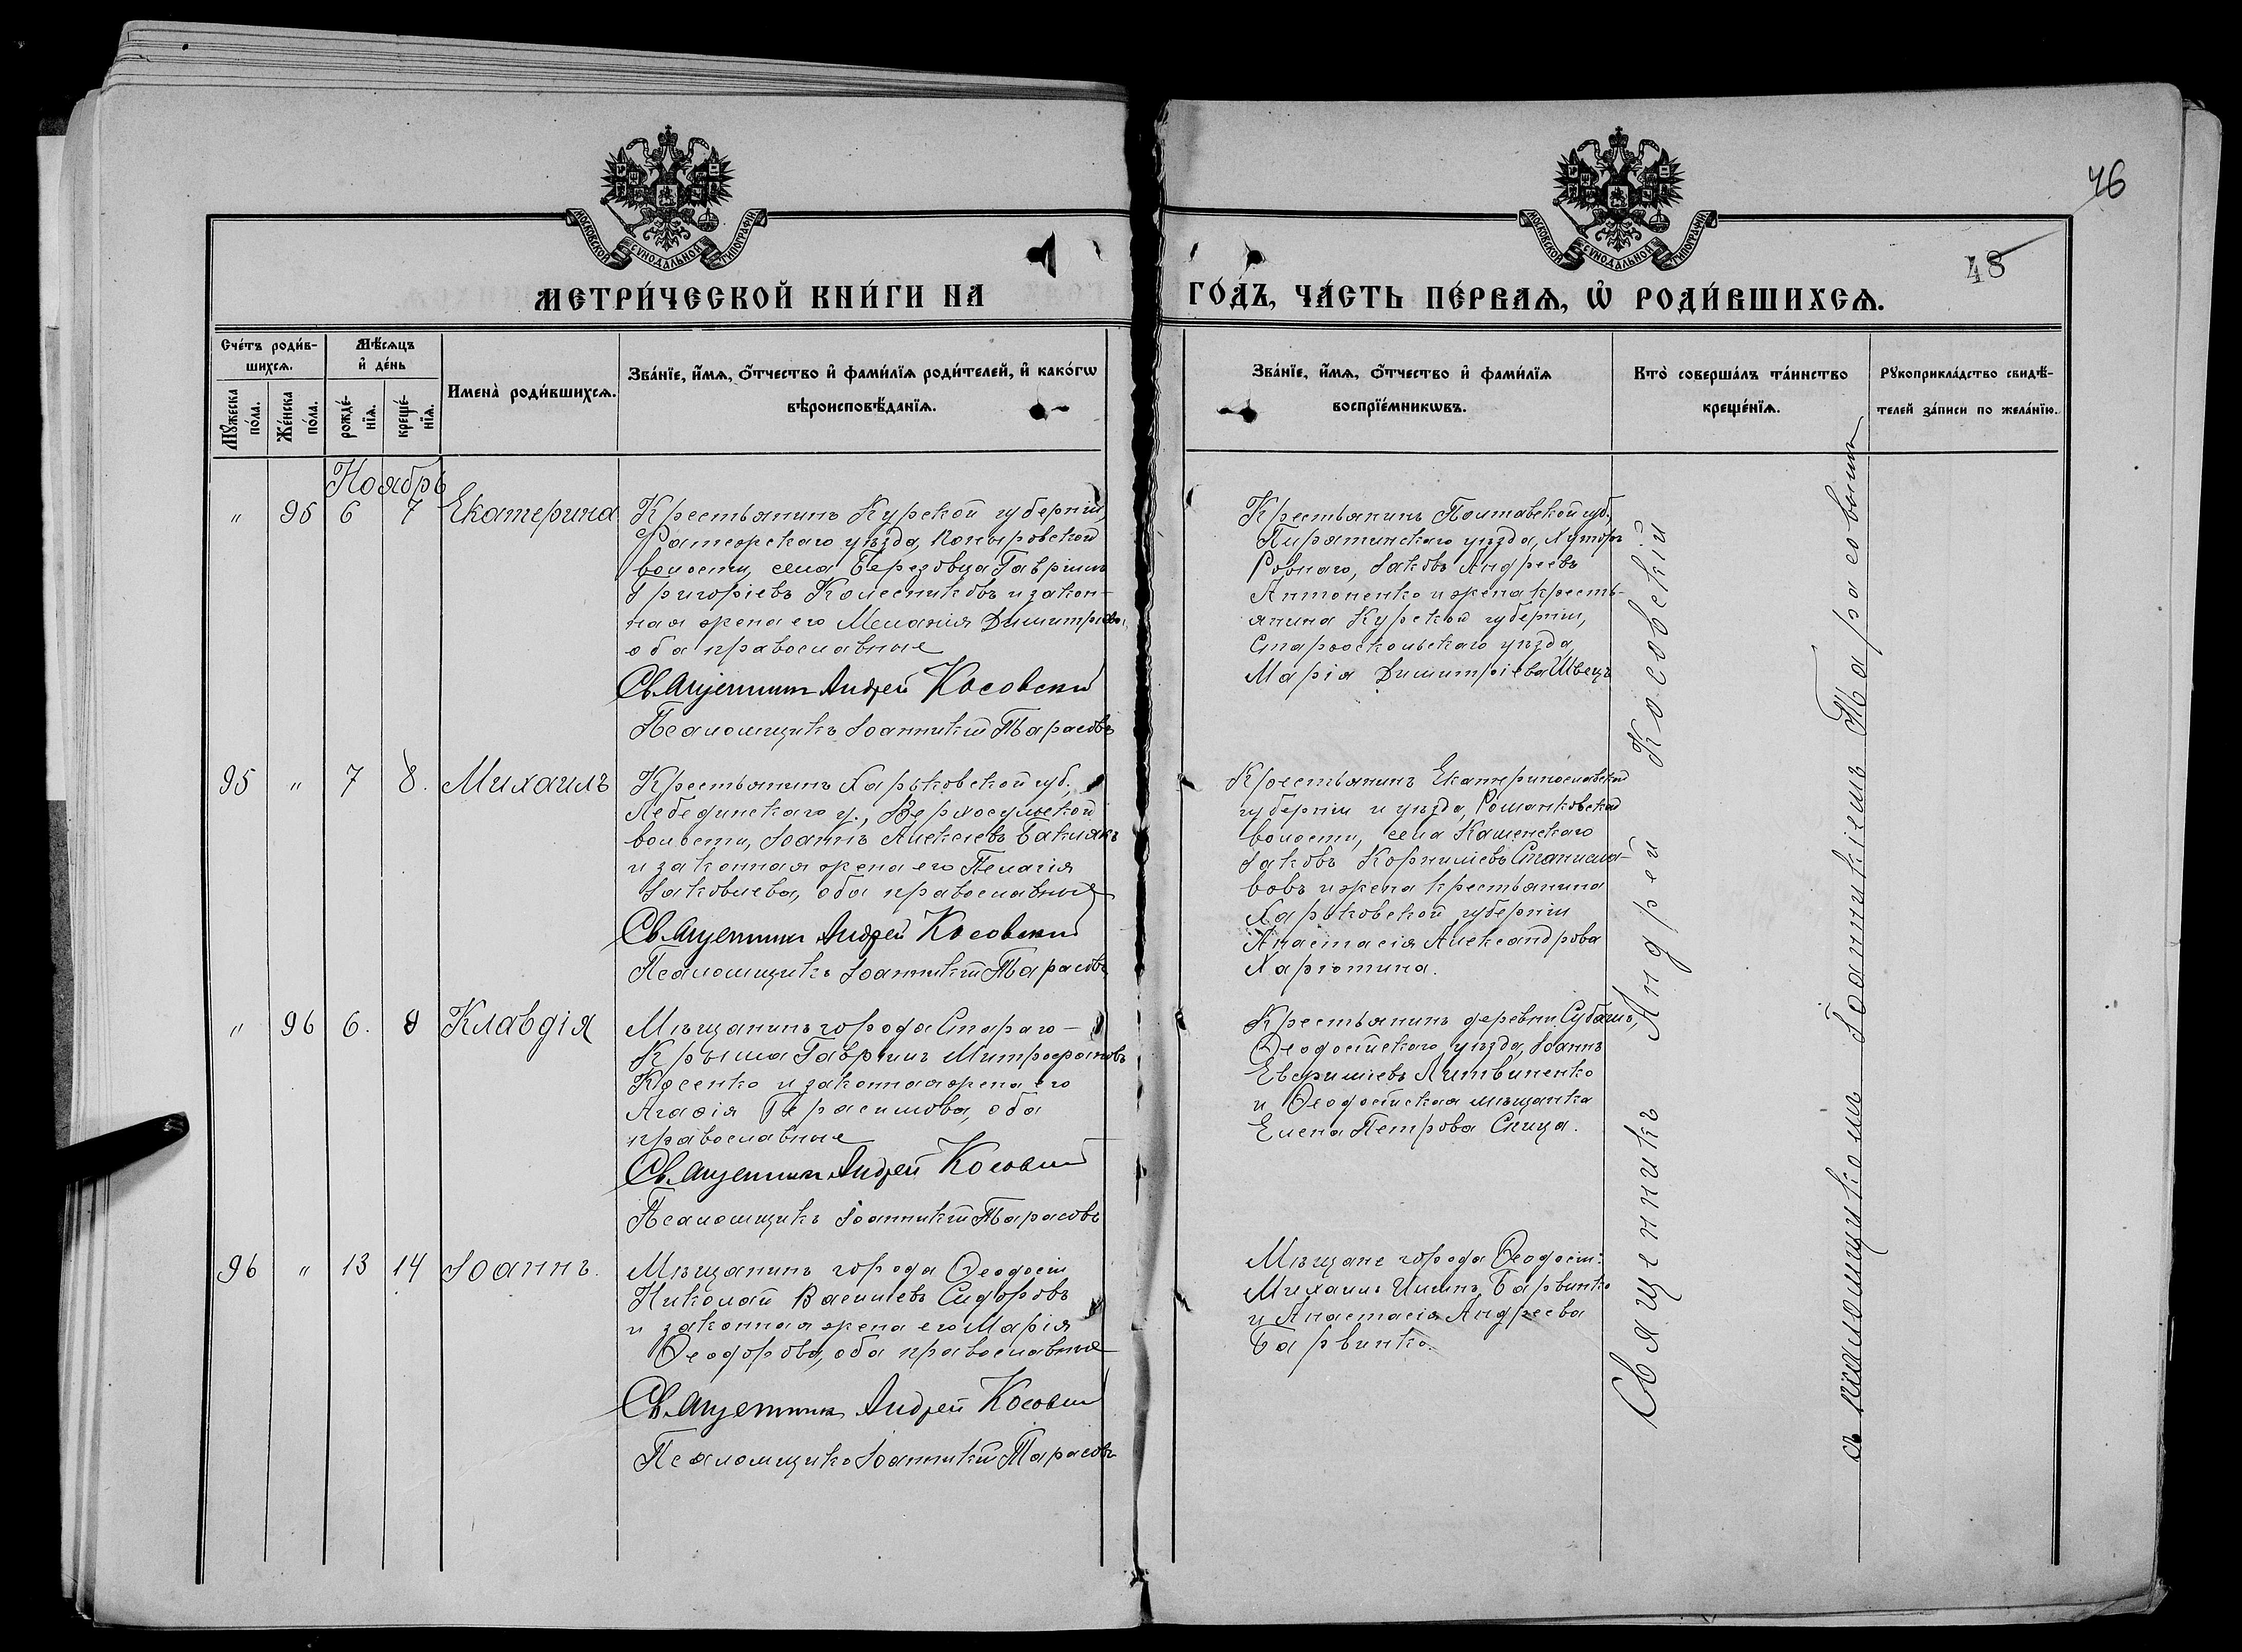 46
48
МОСКОВСКОЙ СУНОДАЛЬНОЙ ТИПОГРАФІИ
МОСКОВСКОЙ СУНОДАЛЬНОЙ ТИПОГРАФІИ
МЕТРИ́ЧЕСКОЙ КНИ́ГИ НА
ГО́ДЪ, ЧА́СТЬ ПЕ́РВАѦ, Ѡ҆ РОДИ́ВШИХСѦ.
Сче́тъ роди́в-
шихсѧ.
Мꙋ́жеска
по́ла.
Же́нска
по́ла.
Мѣ́сѧцъ
и҆ де́нь
рожде́-
нїѧ.
креще́-
нїѧ.
Имена̀ роди́вшихсѧ.
Зва́нїе, и҆́мѧ, ѻ҆́тчество и҆ фами́лїѧ роди́телей, и҆ како́гѡ
вѣроисповѣ́данїѧ.
Зва́нїе, и҆́мѧ, ѻ҆́тчество и҆ фами́лїѧ
воспрїе́мникѡвъ.
Кто̀ соверша́лъ та́инство
креще́нїѧ.
Рꙋкоприкла́дство свидѣ́-
телей за́писи по жела́нїю.
Ноябрь
" 95 6 7 Екатерина
Крестьянинъ Курской губерніи,
Фатежскаго уѣзда, Поныровской
волости, села Березовца Гавріилъ
Григоріевъ Колесниковъ и закон-
ная жена его Меланія Димитріева,
оба православные
Священникъ Андрей Косовский
Псаломщикъ Іоанникій Тарасовъ
Крестьянинъ Полтавской губ.,
Пирятинскаго уѣзда, хутора
Ровнаго, Іаковъ Андреевъ
Антоненко и жена кресть-
янина Курской губерніи,
Старооскольскаго уѣзда,
Марія Димитріева Швецъ
95 " 7 8. Михаилъ
Крестьянинъ Харьковской губ.,
Лебединскаго у., Верхосульской
волости, Іоаннъ Алексіевъ Баклякъ
и законная жена его Пелагія
Іаковлева, оба православные
Священникъ Андрей Косовский
Псаломщикъ Іоанникій Тарасовъ
Крестьянинъ Екатеринославской
губерніи и уѣзда, Романковской
волости, села Каменскаго
Іаковъ Корниліевъ Станисла-
вовъ и жена крестьянина
Харьковской губерніи
Анастасія Александрова
Харютина.
" 96 6. 9 Клавдія
Мѣщанинъ города Стараго-
Крыма Гавріилъ Митрофановъ
и законная жена его
Агафія Герасимова, оба
православные
Священникъ Андрей Косовский
Псаломщикъ Іоанникій Тарасовъ
Крестьянинъ деревни Субашъ,
Ѳеодосійскаго уѣзда, Іоаннъ
Литвиненко
и Ѳеодосійская мѣщанка
Елена Петрова Спица.
96 " 13 14 Іоаннъ.
Мѣщанинъ города Ѳеодосіи
Николай Василіевъ Сидоровъ
и законная жена его Марія
Ѳеодорова, оба православные
Священникъ Андрей Косовский
Псаломщикъ Іоанникій Тарасовъ
Мѣщане города Ѳеодосіи:
Михаилъ Барвинко
и Анастасія Андреева
Барвинко.
Священникъ Андрей Косовскій
съ псаломщикомъ Іоанникіемъ Тарасовымъ